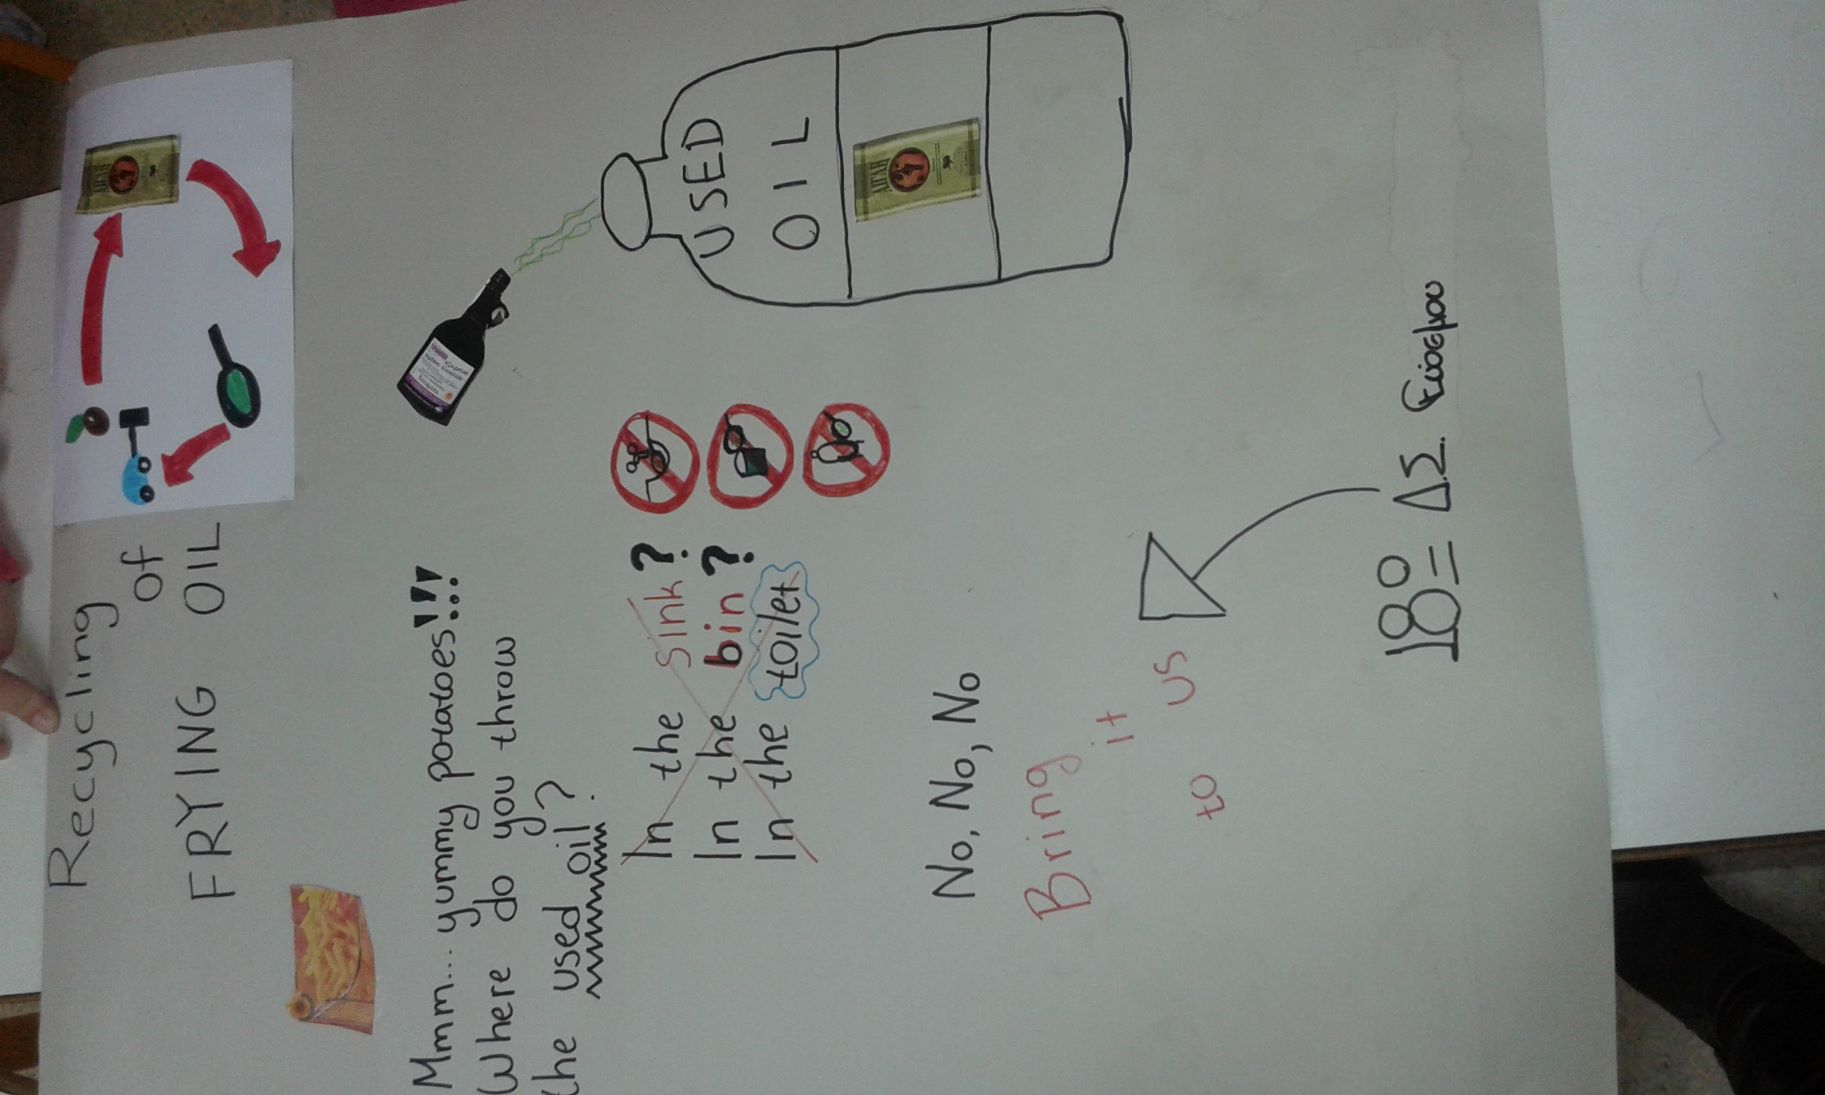 Recycling
of
FRYING OIL
Mmm.... yummy potatoes!!!
Where do you throw
the used oil?
In the sink?
In the bin?
In the toilet
No, No, No
Bring
it
to us
USED
OIL
18º = ΔΣ Εύοσμου